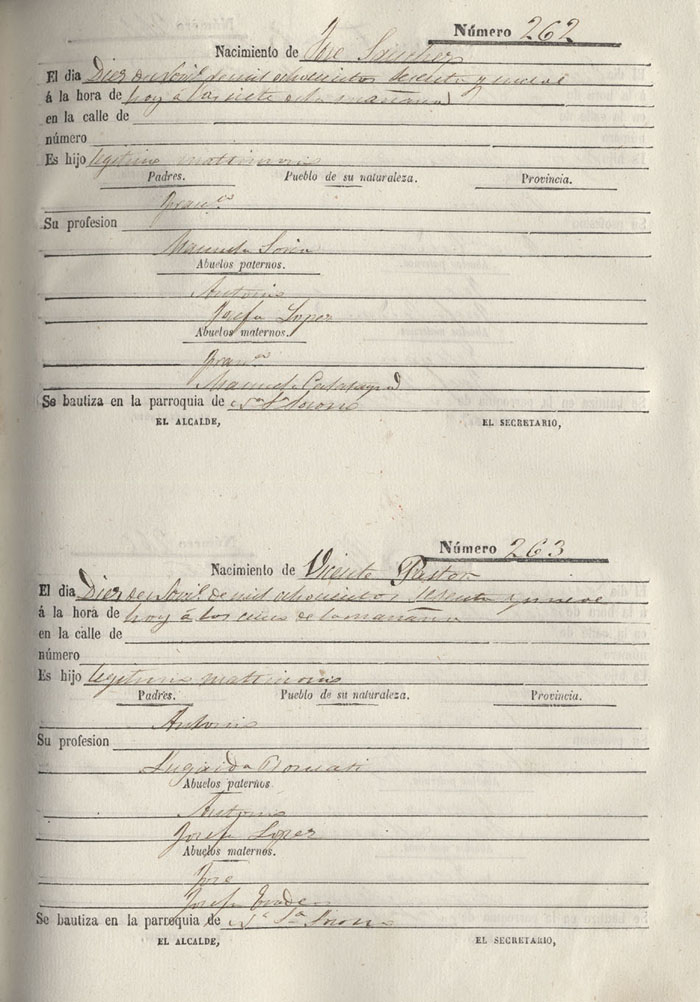 Número 262
Nacimiento de José Sanchez
El dia Diez de Abril de mil ochocientos sesenta y nueve
á la hora de hoy á las siete de la mañana
en la calle de
número
Es hijo legitimo matrimonio
Padres. Pueblo de su naturaleza. Provincia.
Fran.co
Su profesion
Manuela Soria
Abuelos paternos.
Antonio
Josefa Lopez
Abuelos maternos.
Fran.co
Manuela
Se bautiza en la parroquia de
EL ALCALDE, EL SECRETARIO,
Número 263
Nacimiento de Vicente Pastor
El dia Diez de Abril de mil ochocientos sesenta y nueve
á la hora de hoy á las cinco de la mañana
en la calle de
número
Es hijo legitimo matrimonio
Padres. Pueblo de su naturaleza. Provincia.
Antonio
Su profesion
Abuelos paternos
Antonio
Josefa Lopez
Abuelos maternos.
José
Josefa
Se bautiza en la parroquia de
EL ALCALDE, EL SECRETARIO,